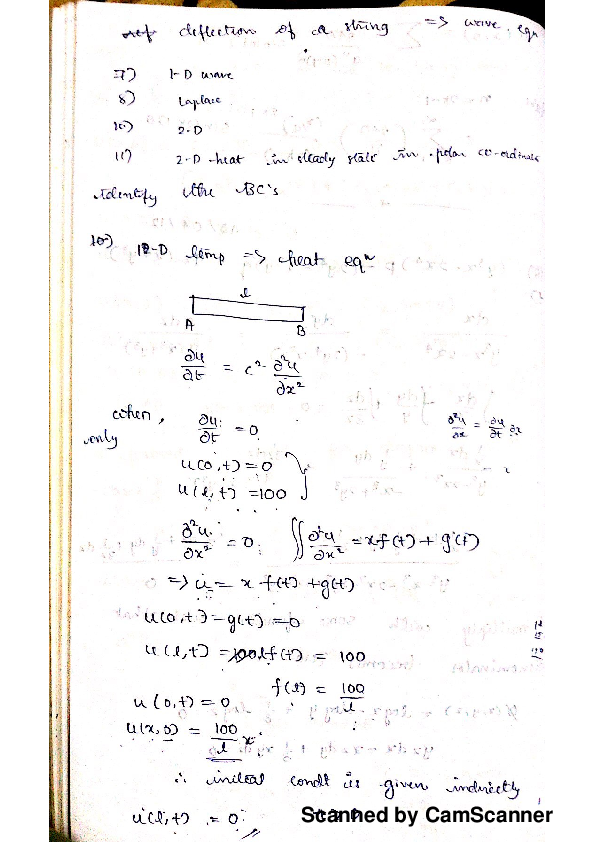 deflection of a string => wave eqn
7) 1-D wave
8) Laplace
10) 2-D
11) 2-D heat in steady state in polar co-ordinate
identify the BC's
10) 1D temp => heat eqn
l
A B
∂u/∂t = c² ∂²u/∂x²
when, ∂u/∂t = 0 ∂²u/∂x = ∂u/∂t ∂x
only
u(0,t) = 0
u(l,t) = 100
∂²u/∂x² = 0 ∬ ∂²u/∂x² = xf(t) + g(t)
=> u = x f(t) + g(t)
u(0,t) - g(t) = 0
u(l,t) = lf(t) = 100
f(l) = 100/l
u(0,t) = 0
u(x,0) = 100/l x
∴ initial condt is given indirectly
u(l,t) = 0
Scanned by CamScanner